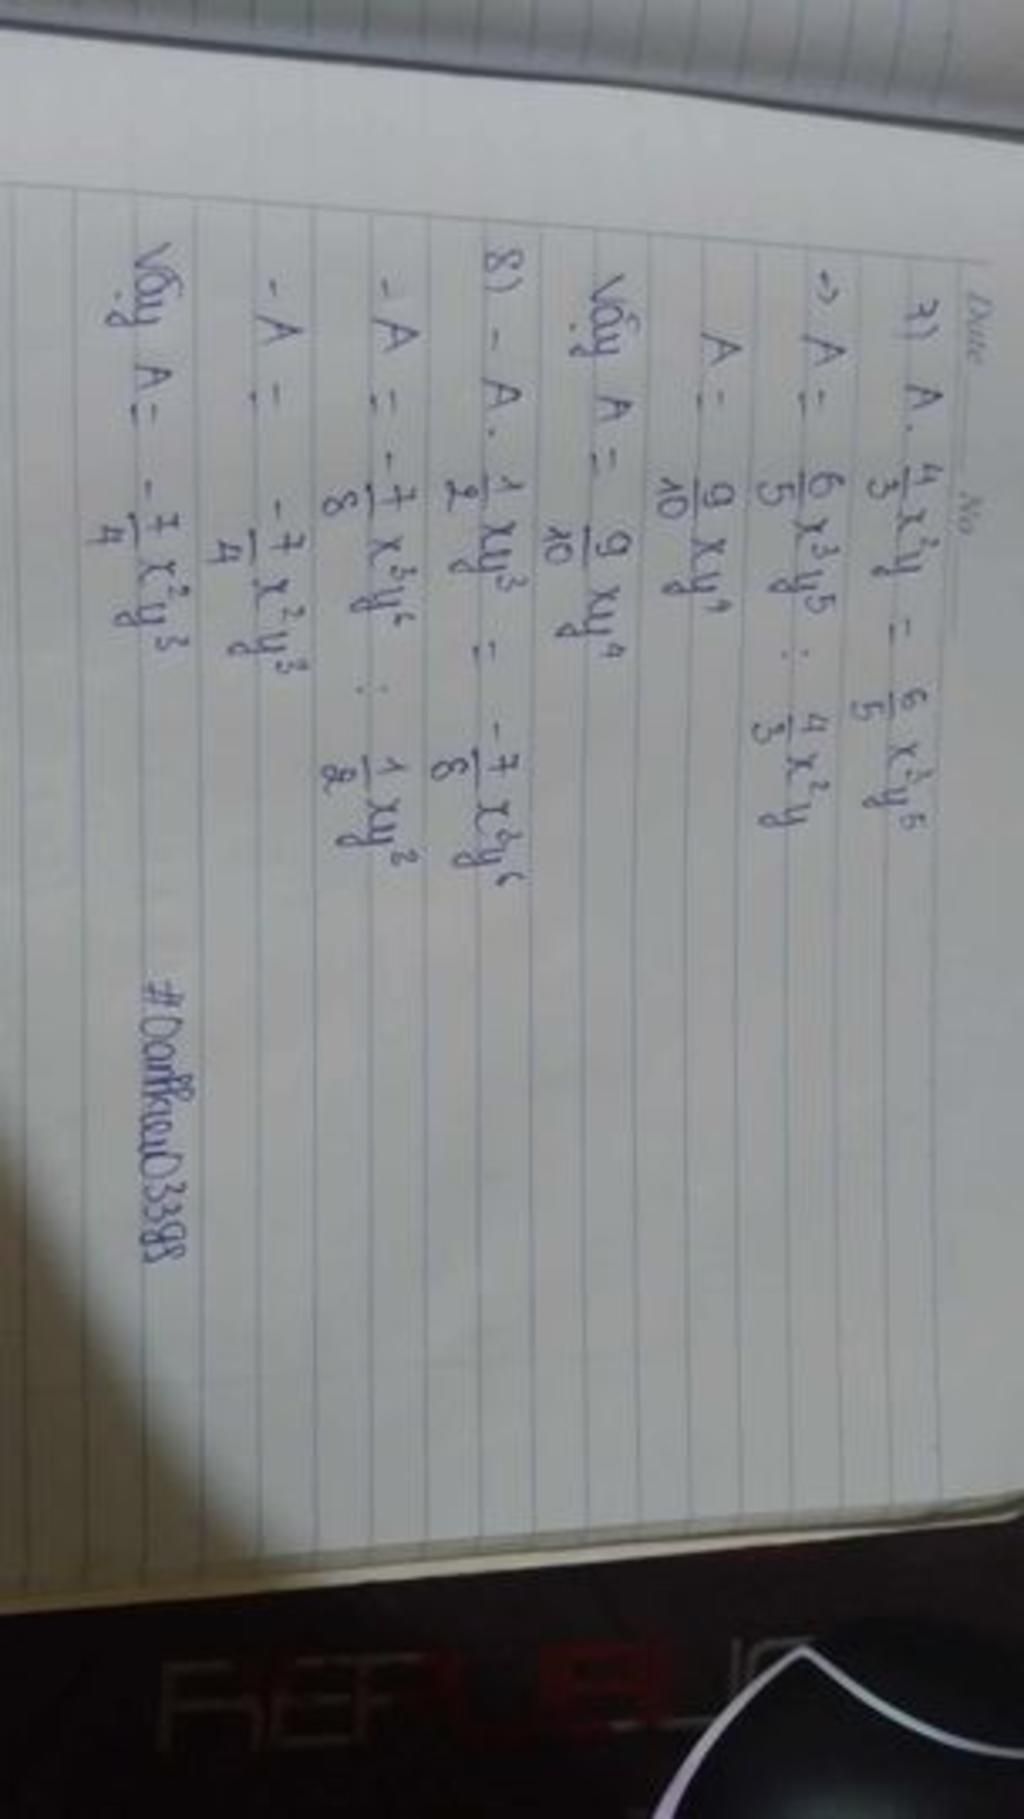 Date No
7) A. 4/3 x²y = 6/5 x³y⁵
-> A = 6/5 x³y⁵ : 4/3 x²y
A = 9/10 xy⁴
Vậy A = 9/10 xy⁴
8) - A. 1/2 xy³ = -7/8 x³y⁶
- A = -7/8 x³y⁶ : 1/2 xy³
- A = -7/4 x²y³
Vậy A = -7/4 x²y³